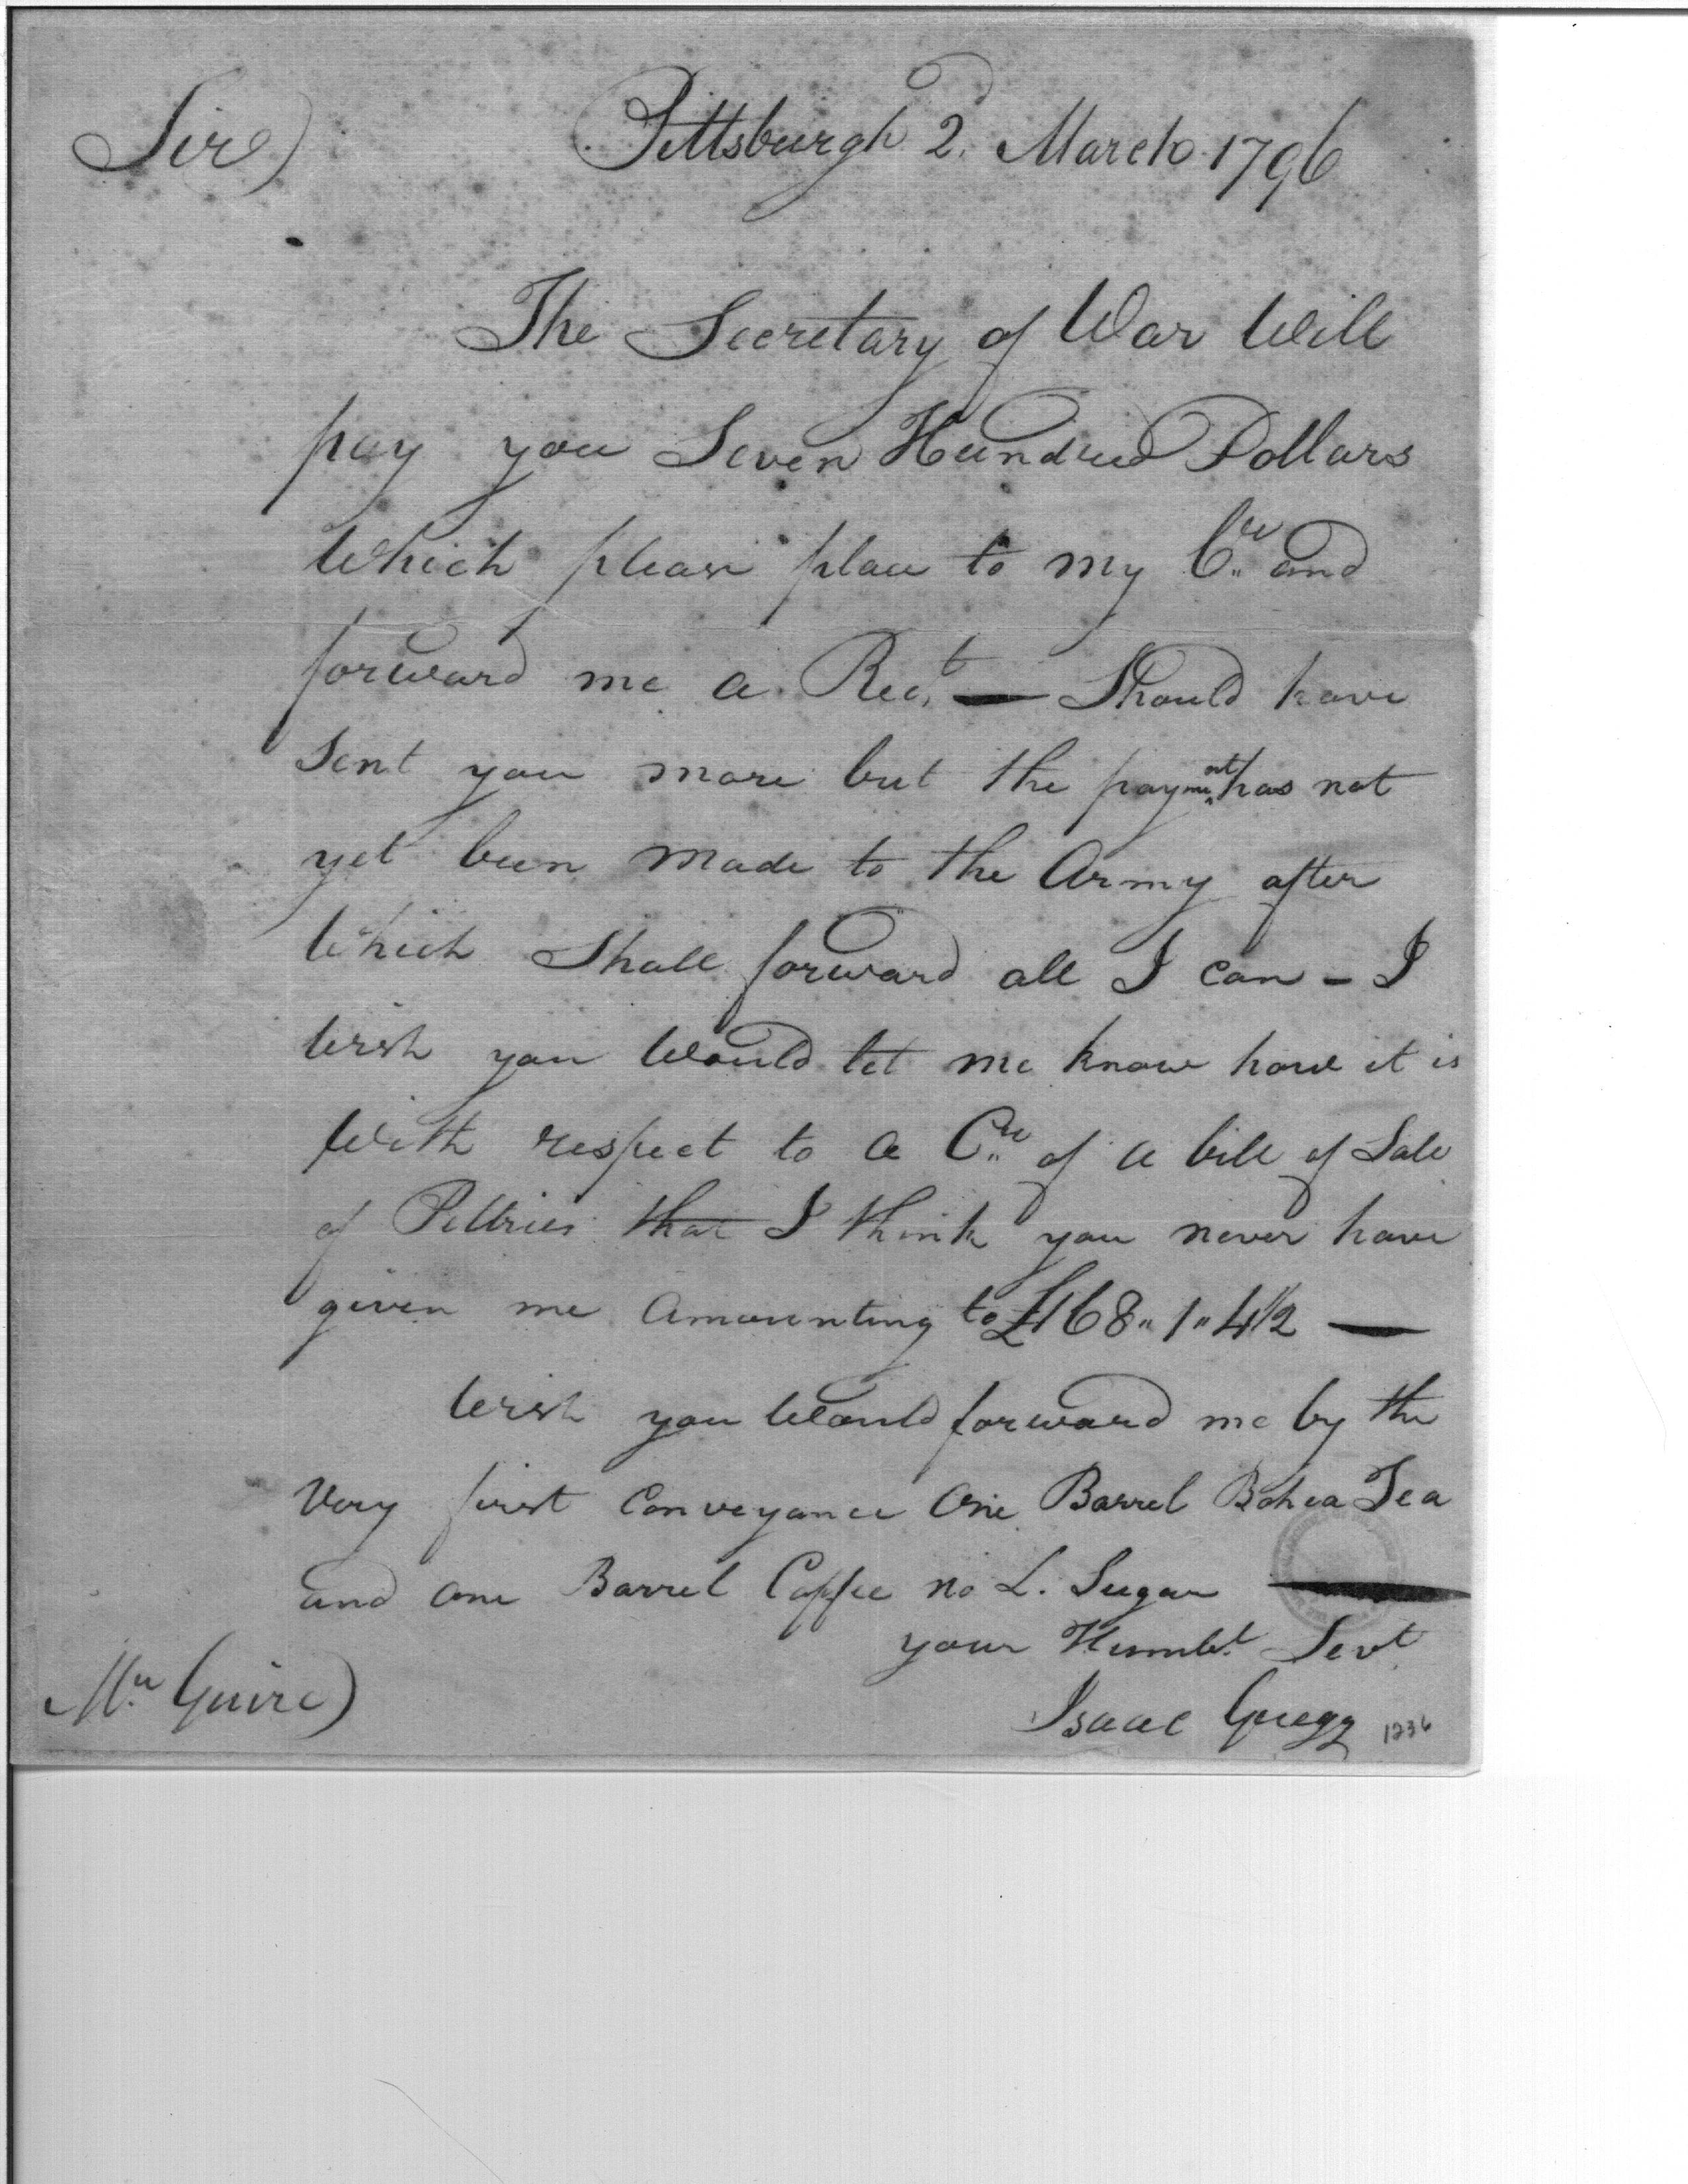 Sir) Pittsburgh 2d March 1796
The Secretary of War Will
pay you Seven Hundred Dollars
Which please place to my Cr and
forward me a Rect — Should have
Sent you more but the payment has not
yet been Made to the Army after
Which Shall forward all I can - I
Wish you Would let me know how it is
With respect to a Cr of a bill of Sale
of Peltries that I think you never have
given me Amounting to £168"1"4½ —
Wish you Would forward me by the
Very first Conveyance One Barrel Bohea Tea
and one Barrel Coffee no L. Sugar —
your Humbl. Sevt
Mr Guire) Isaac Gregg 1236